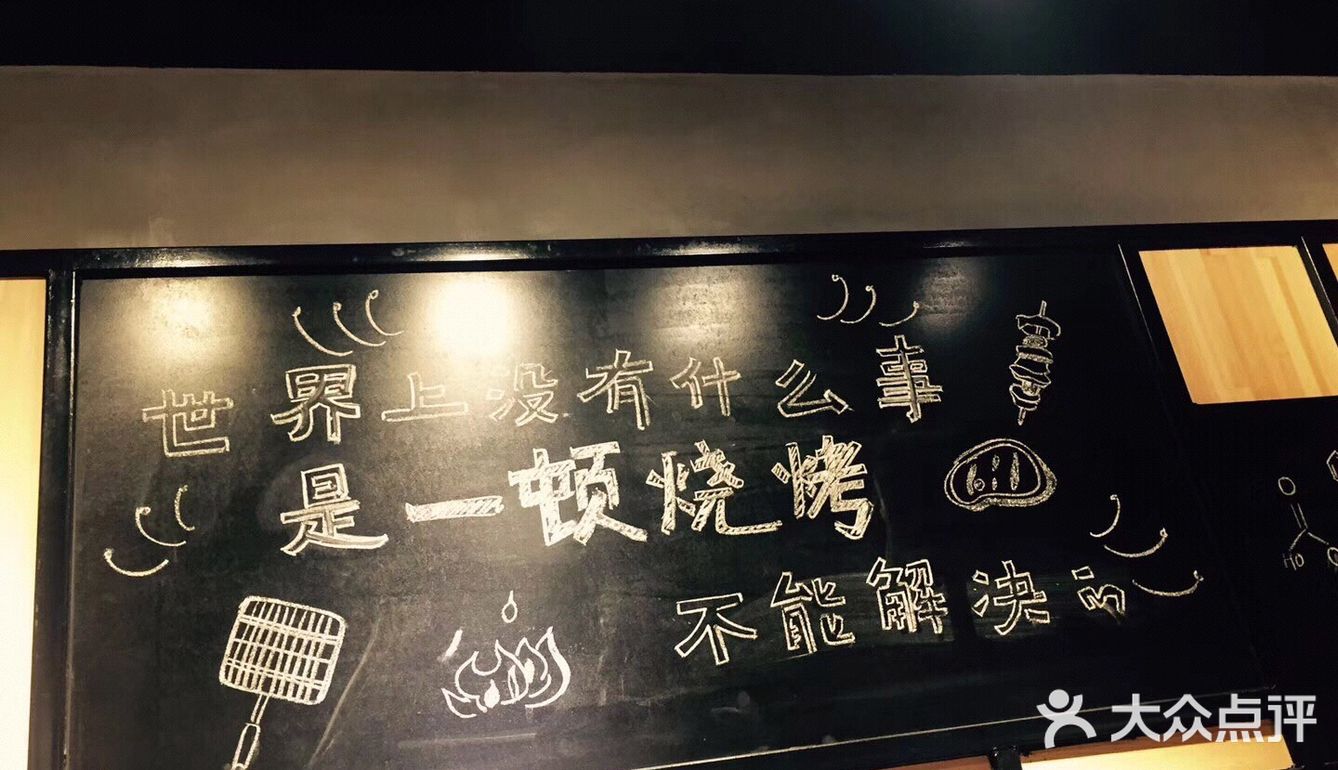 世界上没有什么事
是一顿烧烤
不能解决
O
HO
大众点评